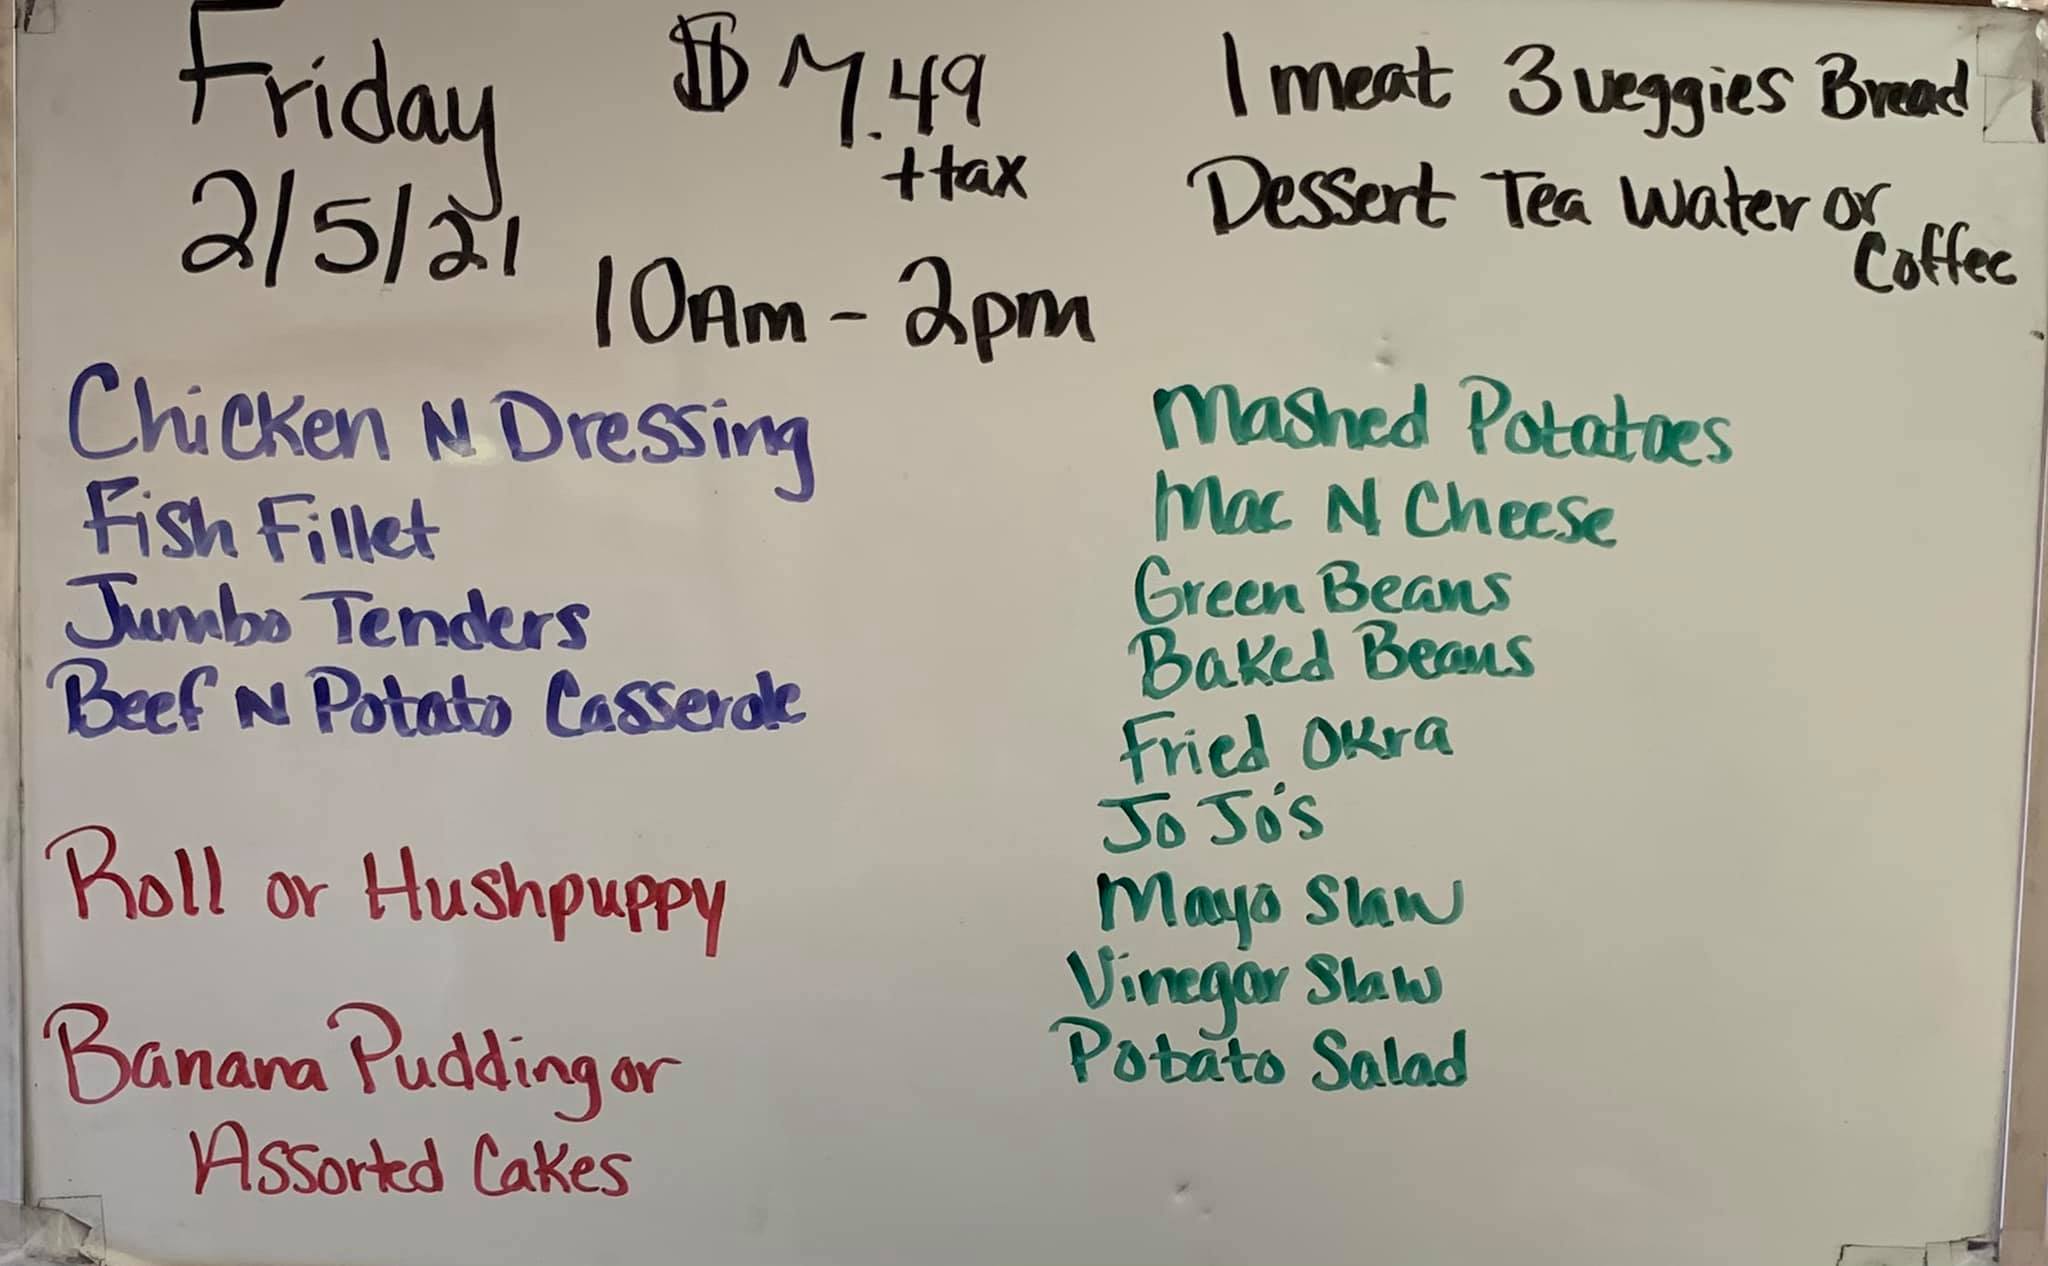 Friday
2/5/21
$7.49
+tax
10Am - 2pm
1 meat 3 veggies Bread
Dessert Tea Water or
Coffee
Chicken N Dressing
Fish Fillet
Jumbo Tenders
Beef N Potato Casserole
Roll or Hushpuppy
Banana Pudding or
Assorted Cakes
Mashed Potatoes
Mac N Cheese
Green Beans
Baked Beans
Fried Okra
Jo Jo's
Mayo Slaw
Vinegar Slaw
Potato Salad